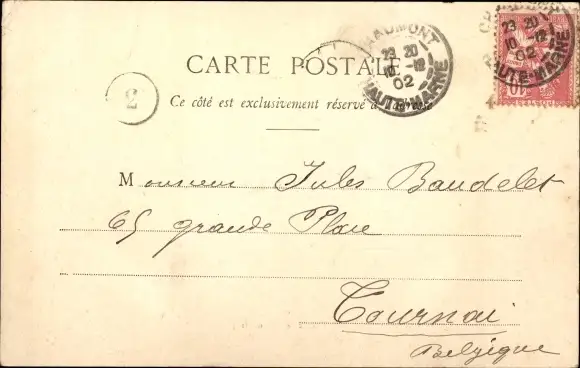 CHAUMONT
23 20
10 -12
02
HAUTE-MARNE
CHAUMONT
23 20
10 -12
02
HAUTE-MARNE
10
CARTE POSTALE
3
Ce côté est exclusivement réservé à l'adresse
Monsieur Jules Baudelet
65 grande Place
Tournai
Belgique